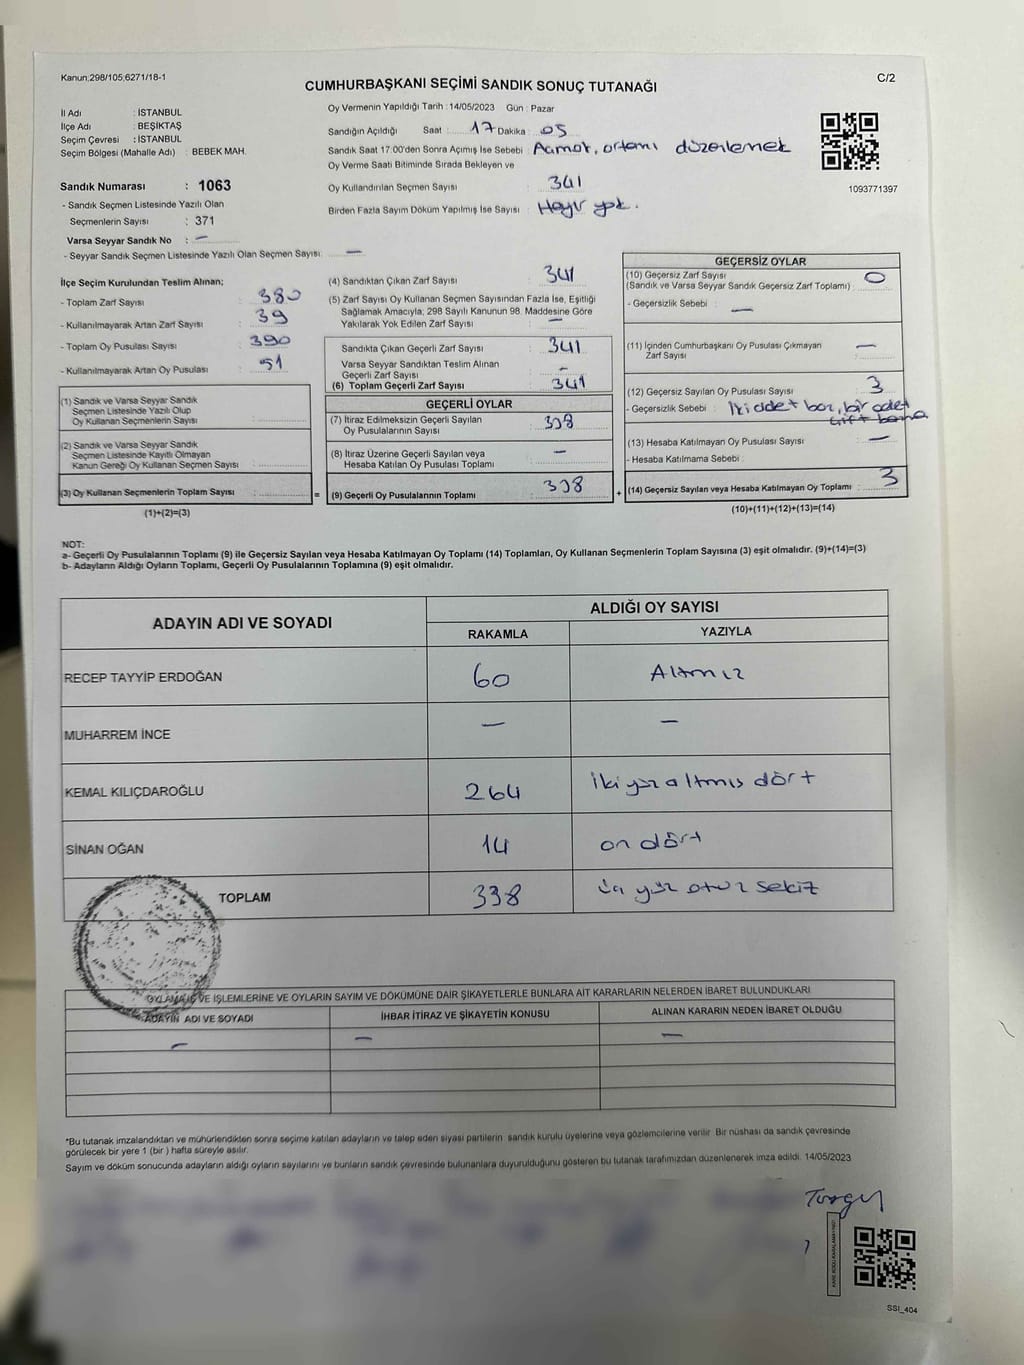 Kanun;298/105;6271/18-1
C/2
CUMHURBAŞKANI SEÇİMİ SANDIK SONUÇ TUTANAĞI
İl Adı : İSTANBUL
İlçe Adı : BEŞİKTAŞ
Seçim Çevresi : İSTANBUL
Seçim Bölgesi (Mahalle Adı) : BEBEK MAH.
Oy Vermenin Yapıldığı Tarih : 14/05/2023 Gün : Pazar
Sandığın Açıldığı Saat : 17 Dakika : 05
Sandık Saat 17:00'den Sonra Açımış İse Sebebi : ortamı düzenlemek
Oy Verme Saati Bitiminde Sırada Bekleyen ve
Oy Kullandırılan Seçmen Sayısı : 341
Birden Fazla Sayım Döküm Yapılmış İse Sayısı : Hayır yok.
1093771397
Sandık Numarası : 1063
- Sandık Seçmen Listesinde Yazılı Olan
Seçmenlerin Sayısı : 371
Varsa Seyyar Sandık No : —
- Seyyar Sandık Seçmen Listesinde Yazılı Olan Seçmen Sayısı : —
İlçe Seçim Kurulundan Teslim Alınan;
- Toplam Zarf Sayısı : 380
- Kullanılmayarak Artan Zarf Sayısı : 39
- Toplam Oy Pusulası Sayısı : 390
- Kullanılmayarak Artan Oy Pusulası : 51
(1) Sandık ve Varsa Seyyar Sandık
Seçmen Listesinde Yazılı Olup
Oy Kullanan Seçmenlerin Sayısı :
(2) Sandık ve Varsa Seyyar Sandık
Seçmen Listesinde Kayıtlı Olmayan
Kanun Gereği Oy Kullanan Seçmen Sayısı :
(3) Oy Kullanan Seçmenlerin Toplam Sayısı : =
(1)+(2)=(3)
(4) Sandıktan Çıkan Zarf Sayısı : 341
(5) Zarf Sayısı Oy Kullanan Seçmen Sayısından Fazla İse, Eşitliği
Sağlamak Amacıyla; 298 Sayılı Kanunun 98. Maddesine Göre
Yakılarak Yok Edilen Zarf Sayısı : —
Sandıkta Çıkan Geçerli Zarf Sayısı : 341
Varsa Seyyar Sandıktan Teslim Alınan
Geçerli Zarf Sayısı : -
(6) Toplam Geçerli Zarf Sayısı : 341
GEÇERLİ OYLAR
(7) İtiraz Edilmeksizin Geçerli Sayılan
Oy Pusulalarının Sayısı : 338
(8) İtiraz Üzerine Geçerli Sayılan veya
Hesaba Katılan Oy Pusulası Toplamı : —
(9) Geçerli Oy Pusulalarının Toplamı : 338 +
GEÇERSİZ OYLAR
(10) Geçersiz Zarf Sayısı : 0
(Sandık ve Varsa Seyyar Sandık Geçersiz Zarf Toplamı)
- Geçersizlik Sebebi : —
(11) İçinden Cumhurbaşkanı Oy Pusulası Çıkmayan
Zarf Sayısı : —
(12) Geçersiz Sayılan Oy Pusulası Sayısı : 3
- Geçersizlik Sebebi : İki adet boz, bir adet
(13) Hesaba Katılmayan Oy Pusulası Sayısı : —
- Hesaba Katılmama Sebebi :
(14) Geçersiz Sayılan veya Hesaba Katılmayan Oy Toplamı : 3
(10)+(11)+(12)+(13)=(14)
NOT:
a- Geçerli Oy Pusulalarının Toplamı (9) ile Geçersiz Sayılan veya Hesaba Katılmayan Oy Toplamı (14) Toplamları, Oy Kullanan Seçmenlerin Toplam Sayısına (3) eşit olmalıdır. (9)+(14)=(3)
b- Adayların Aldığı Oyların Toplamı, Geçerli Oy Pusulalarının Toplamına (9) eşit olmalıdır.
ADAYIN ADI VE SOYADI
ALDIĞI OY SAYISI
RAKAMLA YAZIYLA
RECEP TAYYİP ERDOĞAN 60 Altmış
MUHARREM İNCE — —
KEMAL KILIÇDAROĞLU 264 İki yüz altmış dört
SİNAN OĞAN 14 on dört
TOPLAM 338 Üç yüz otuz sekiz
OYLAMA İŞ VE İŞLEMLERİNE VE OYLARIN SAYIM VE DÖKÜMÜNE DAİR ŞİKAYETLERLE BUNLARA AİT KARARLARIN NELERDEN İBARET BULUNDUKLARI
ADAYIN ADI VE SOYADI İHBAR İTİRAZ VE ŞİKAYETİN KONUSU ALINAN KARARIN NEDEN İBARET OLDUĞU
— — —
*Bu tutanak imzalandıktan ve mühürlendikten sonra seçime katılan adayların ve talep eden siyasi partilerin sandık kurulu üyelerine veya gözlemcilerine verilir. Bir nüshası da sandık çevresinde
görülecek bir yere 1 (bir ) hafta süreyle asılır.
Sayım ve döküm sonucunda adayların aldığı oyların sayılarını ve bunların sandık çevresinde bulunanlara duyurulduğunu gösteren bu tutanak tarafımızdan düzenlenerek imza edildi. 14/05/2023
SSI_404